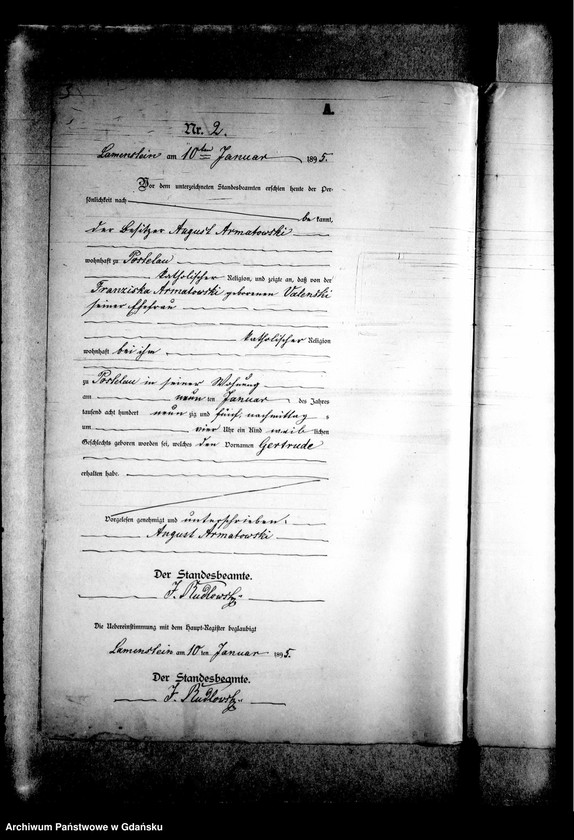 A.
Nr. 2.
Lamenstein am 10ten Januar 1895.
Vor dem unterzeichneten Standesbeamten erschien heute, der Per-
sönlichkeit nach
be kannt,
der Besitzer August Armatowski
wohnhaft zu Postelau
katholischer Religion, und zeigte an, daß von der
Franziska Armatowski geborenen Valenski
seiner Ehefrau
katholischer Religion
wohnhaft bei ihm
zu Postelau in seiner Wohnung
am neun ten Januar des Jahres
tausend acht hundert neun zig und fünf, nachmittag s
um vier Uhr ein Kind weib lichen
Geschlechts geboren worden sei, welches den Vornamen Gertrude
erhalten habe.
Vorgelesen genehmigt und unterschrieben.
August Armatowski
Der Standesbeamte.
F. Rudlowsky
Die Uebereinstimmung mit dem Haupt-Register beglaubigt
Lamenstein am 10 ten Januar 1895.
Der Standesbeamte.
F. Rudlowsky
Archiwum Państwowe w Gdańsku